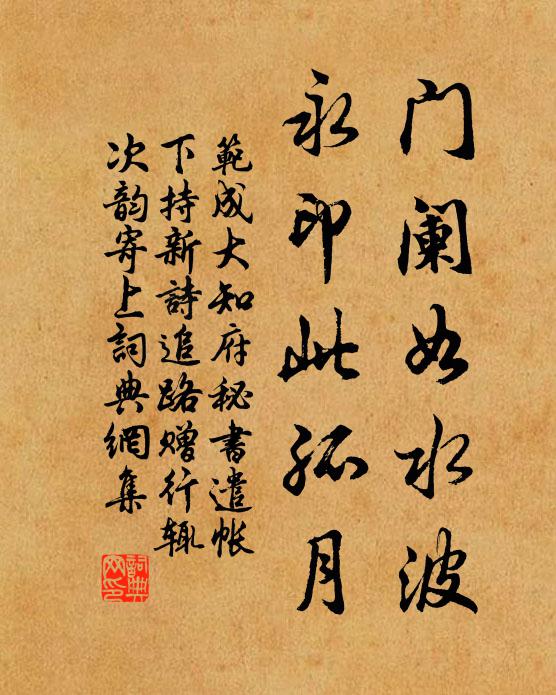 门阑如水波
永印此孤月
範成大知府秘書遣帐
下持新詩追路赠行辄
次韵寄上詞典網集
詞典網印